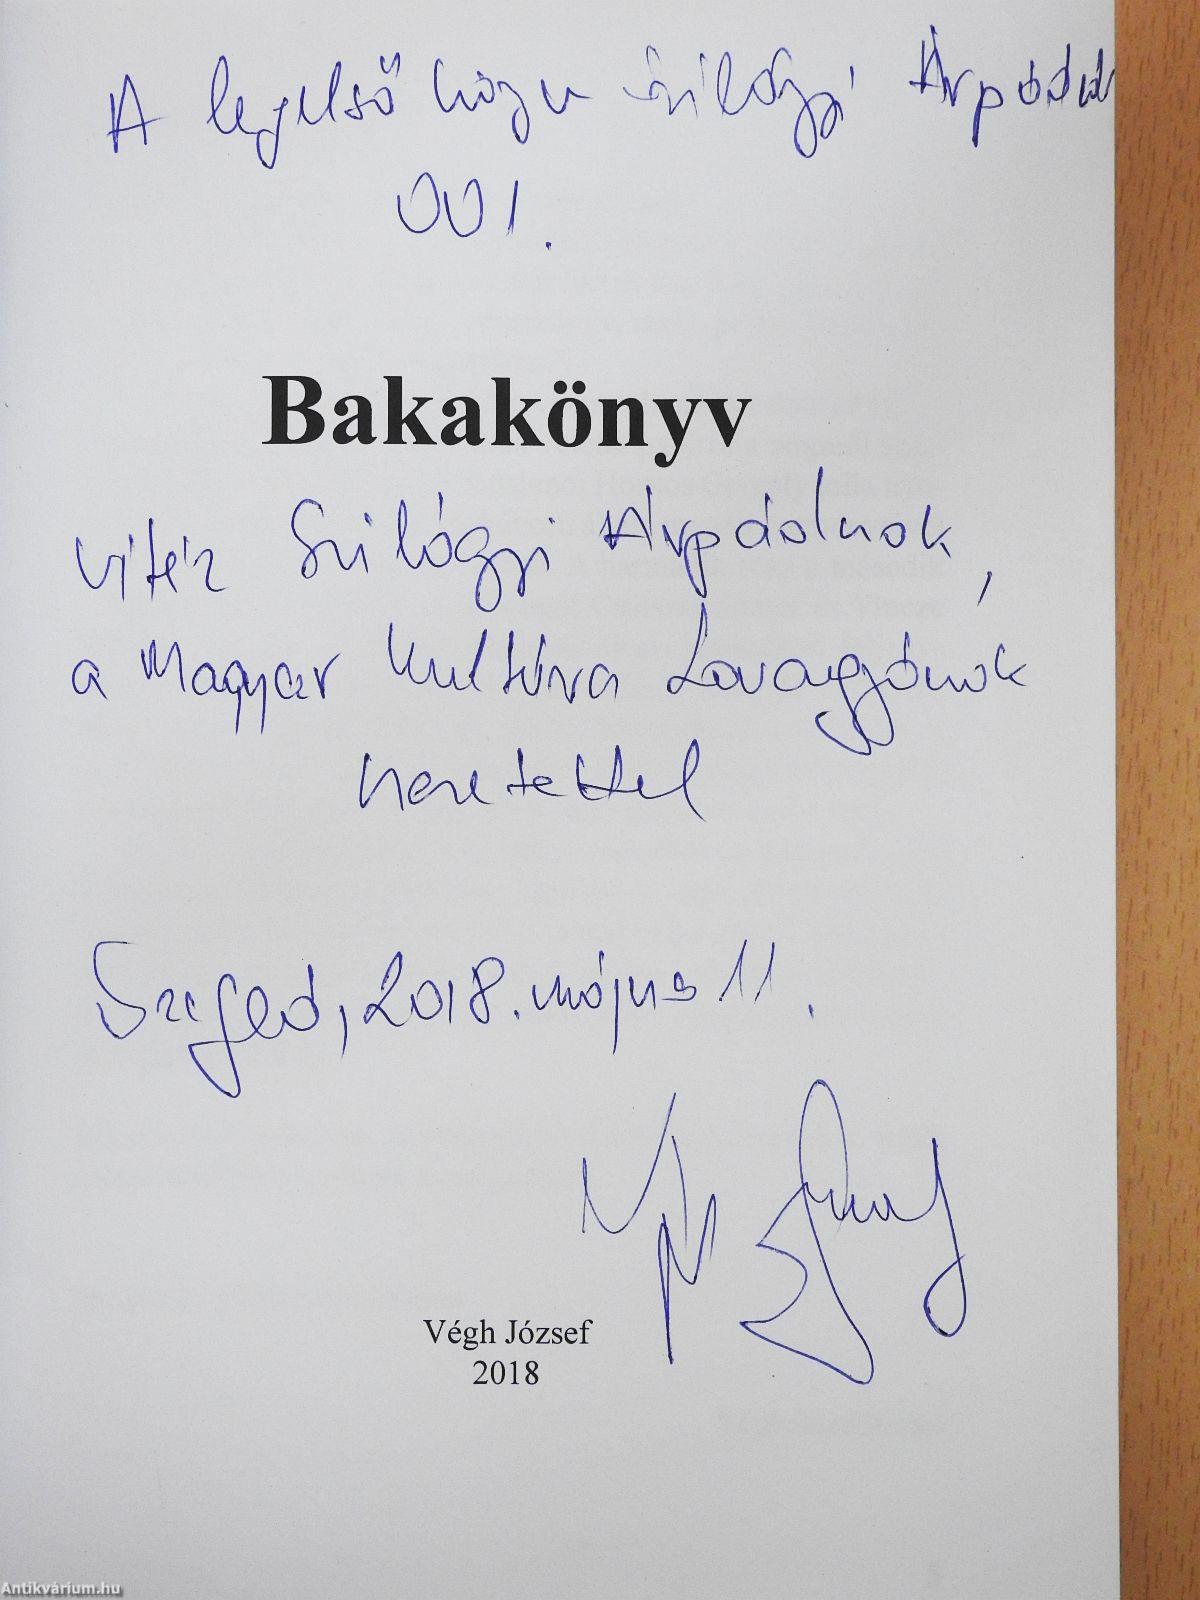 A legelső könyv Szilágyi Árpádnak
001.
Bakakönyv
vitéz Szilágyi Árpádnak,
a Magyar Kultúra Lovagjának
szeretettel
Szeged, 2018. május 11.
Végh József
2018
Antikvárium.hu